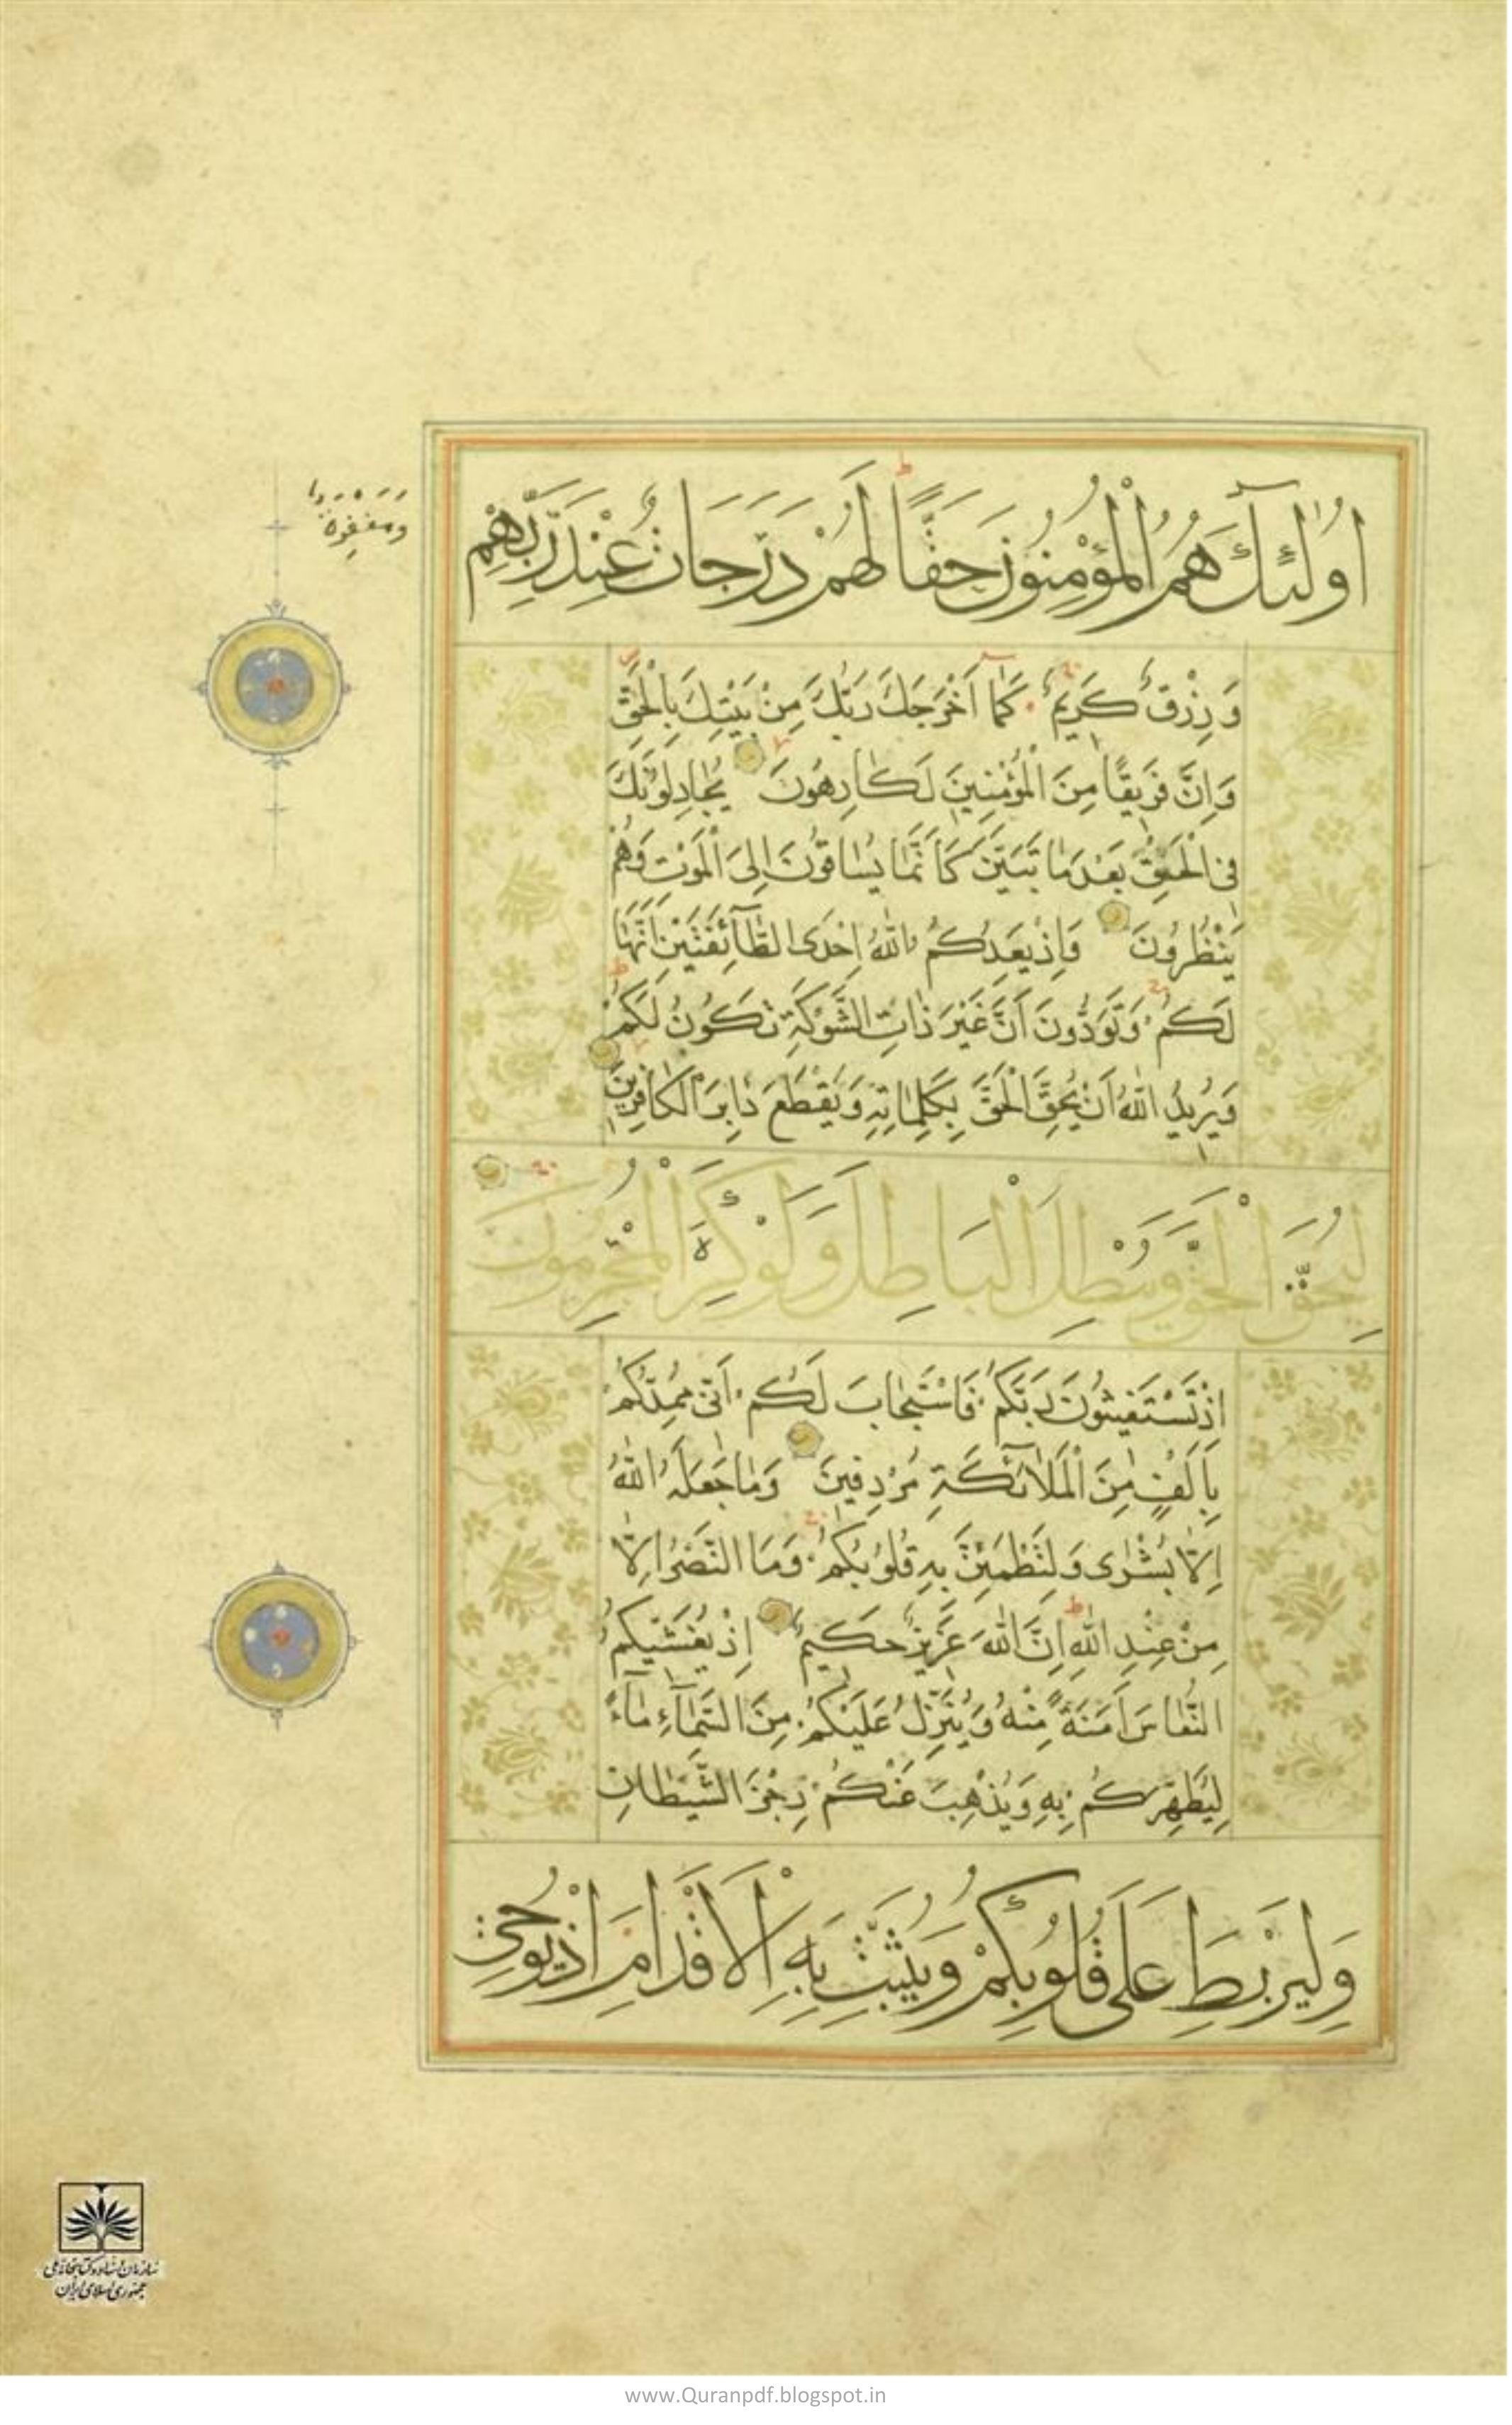 اُولٰئِكَ هُمُ الْمُؤْمِنُونَ حَقًّا لَهُمْ دَرَجَاتٌ عِنْدَ رَبِّهِمْ
وَمَغْفِرَةٌ
وَرِزْقٌ كَرِيمٌ كَمَا اَخْرَجَكَ رَبُّكَ مِنْ بَيْتِكَ بِالْحَقِّ
وَاِنَّ فَرِيقًا مِنَ الْمُؤْمِنِينَ لَكَارِهُونَ يُجَادِلُونَكَ
فِى الْحَقِّ بَعْدَ مَا تَبَيَّنَ كَاَنَّمَا يُسَاقُونَ اِلَى الْمَوْتِ وَهُمْ
يَنْظُرُونَ وَاِذْ يَعِدُكُمُ اللّٰهُ اِحْدَى الطَّآئِفَتَيْنِ اَنَّهَا
لَكُمْ وَتَوَدُّونَ اَنَّ غَيْرَ ذَاتِ الشَّوْكَةِ تَكُونُ لَكُمْ
وَيُرِيدُ اللّٰهُ اَنْ يُحِقَّ الْحَقَّ بِكَلِمَاتِهِ وَيَقْطَعَ دَابِرَ الْكَافِرِينَ
لِيُحِقَّ الْحَقَّ وَيُبْطِلَ الْبَاطِلَ وَلَوْ كَرِهَ الْمُجْرِمُونَ
اِذْ تَسْتَغِيثُونَ رَبَّكُمْ فَاسْتَجَابَ لَكُمْ اَنِّى مُمِدُّكُمْ
بِاَلْفٍ مِنَ الْمَلَآئِكَةِ مُرْدِفِينَ وَمَا جَعَلَهُ اللّٰهُ
اِلَّا بُشْرٰى وَلِتَطْمَئِنَّ بِهِ قُلُوبُكُمْ وَمَا النَّصْرُ اِلَّا
مِنْ عِنْدِ اللّٰهِ اِنَّ اللّٰهَ عَزِيزٌ حَكِيمٌ اِذْ يُغَشِّيكُمُ
النُّعَاسَ اَمَنَةً مِنْهُ وَيُنَزِّلُ عَلَيْكُمْ مِنَ السَّمَآءِ مَآءً
لِيُطَهِّرَكُمْ بِهِ وَيُذْهِبَ عَنْكُمْ رِجْزَ الشَّيْطَانِ
وَلِيَرْبِطَ عَلٰى قُلُوبِكُمْ وَيُثَبِّتَ بِهِ الْاَقْدَامَ اِذْ يُوحِى
سازمان اسناد و کتابخانه ملی
جمهوری اسلامی ایران
www.Quranpdf.blogspot.in